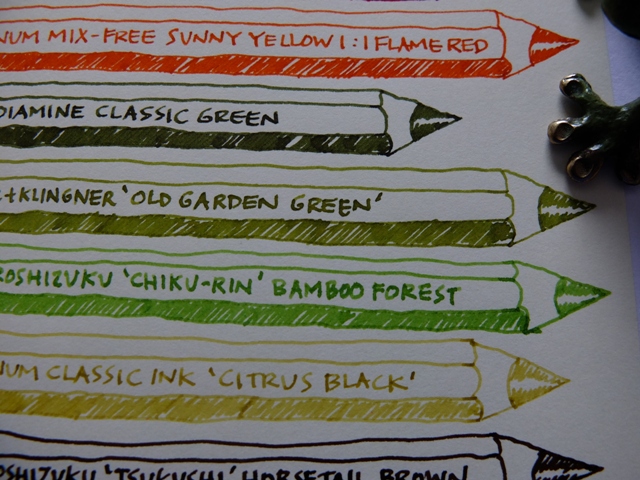 NUM MIX-FREE SUNNY YELLOW 1:1 FLAME RED
DIAMINE CLASSIC GREEN
+KLINGNER 'OLD GARDEN GREEN'
ROSHIZUKU 'CHIKU-RIN' BAMBOO FOREST
NUM CLASSIC INK 'CITRUS BLACK'
OSHIZUKU 'TSUKUSHI' HORSETAIL BROWN